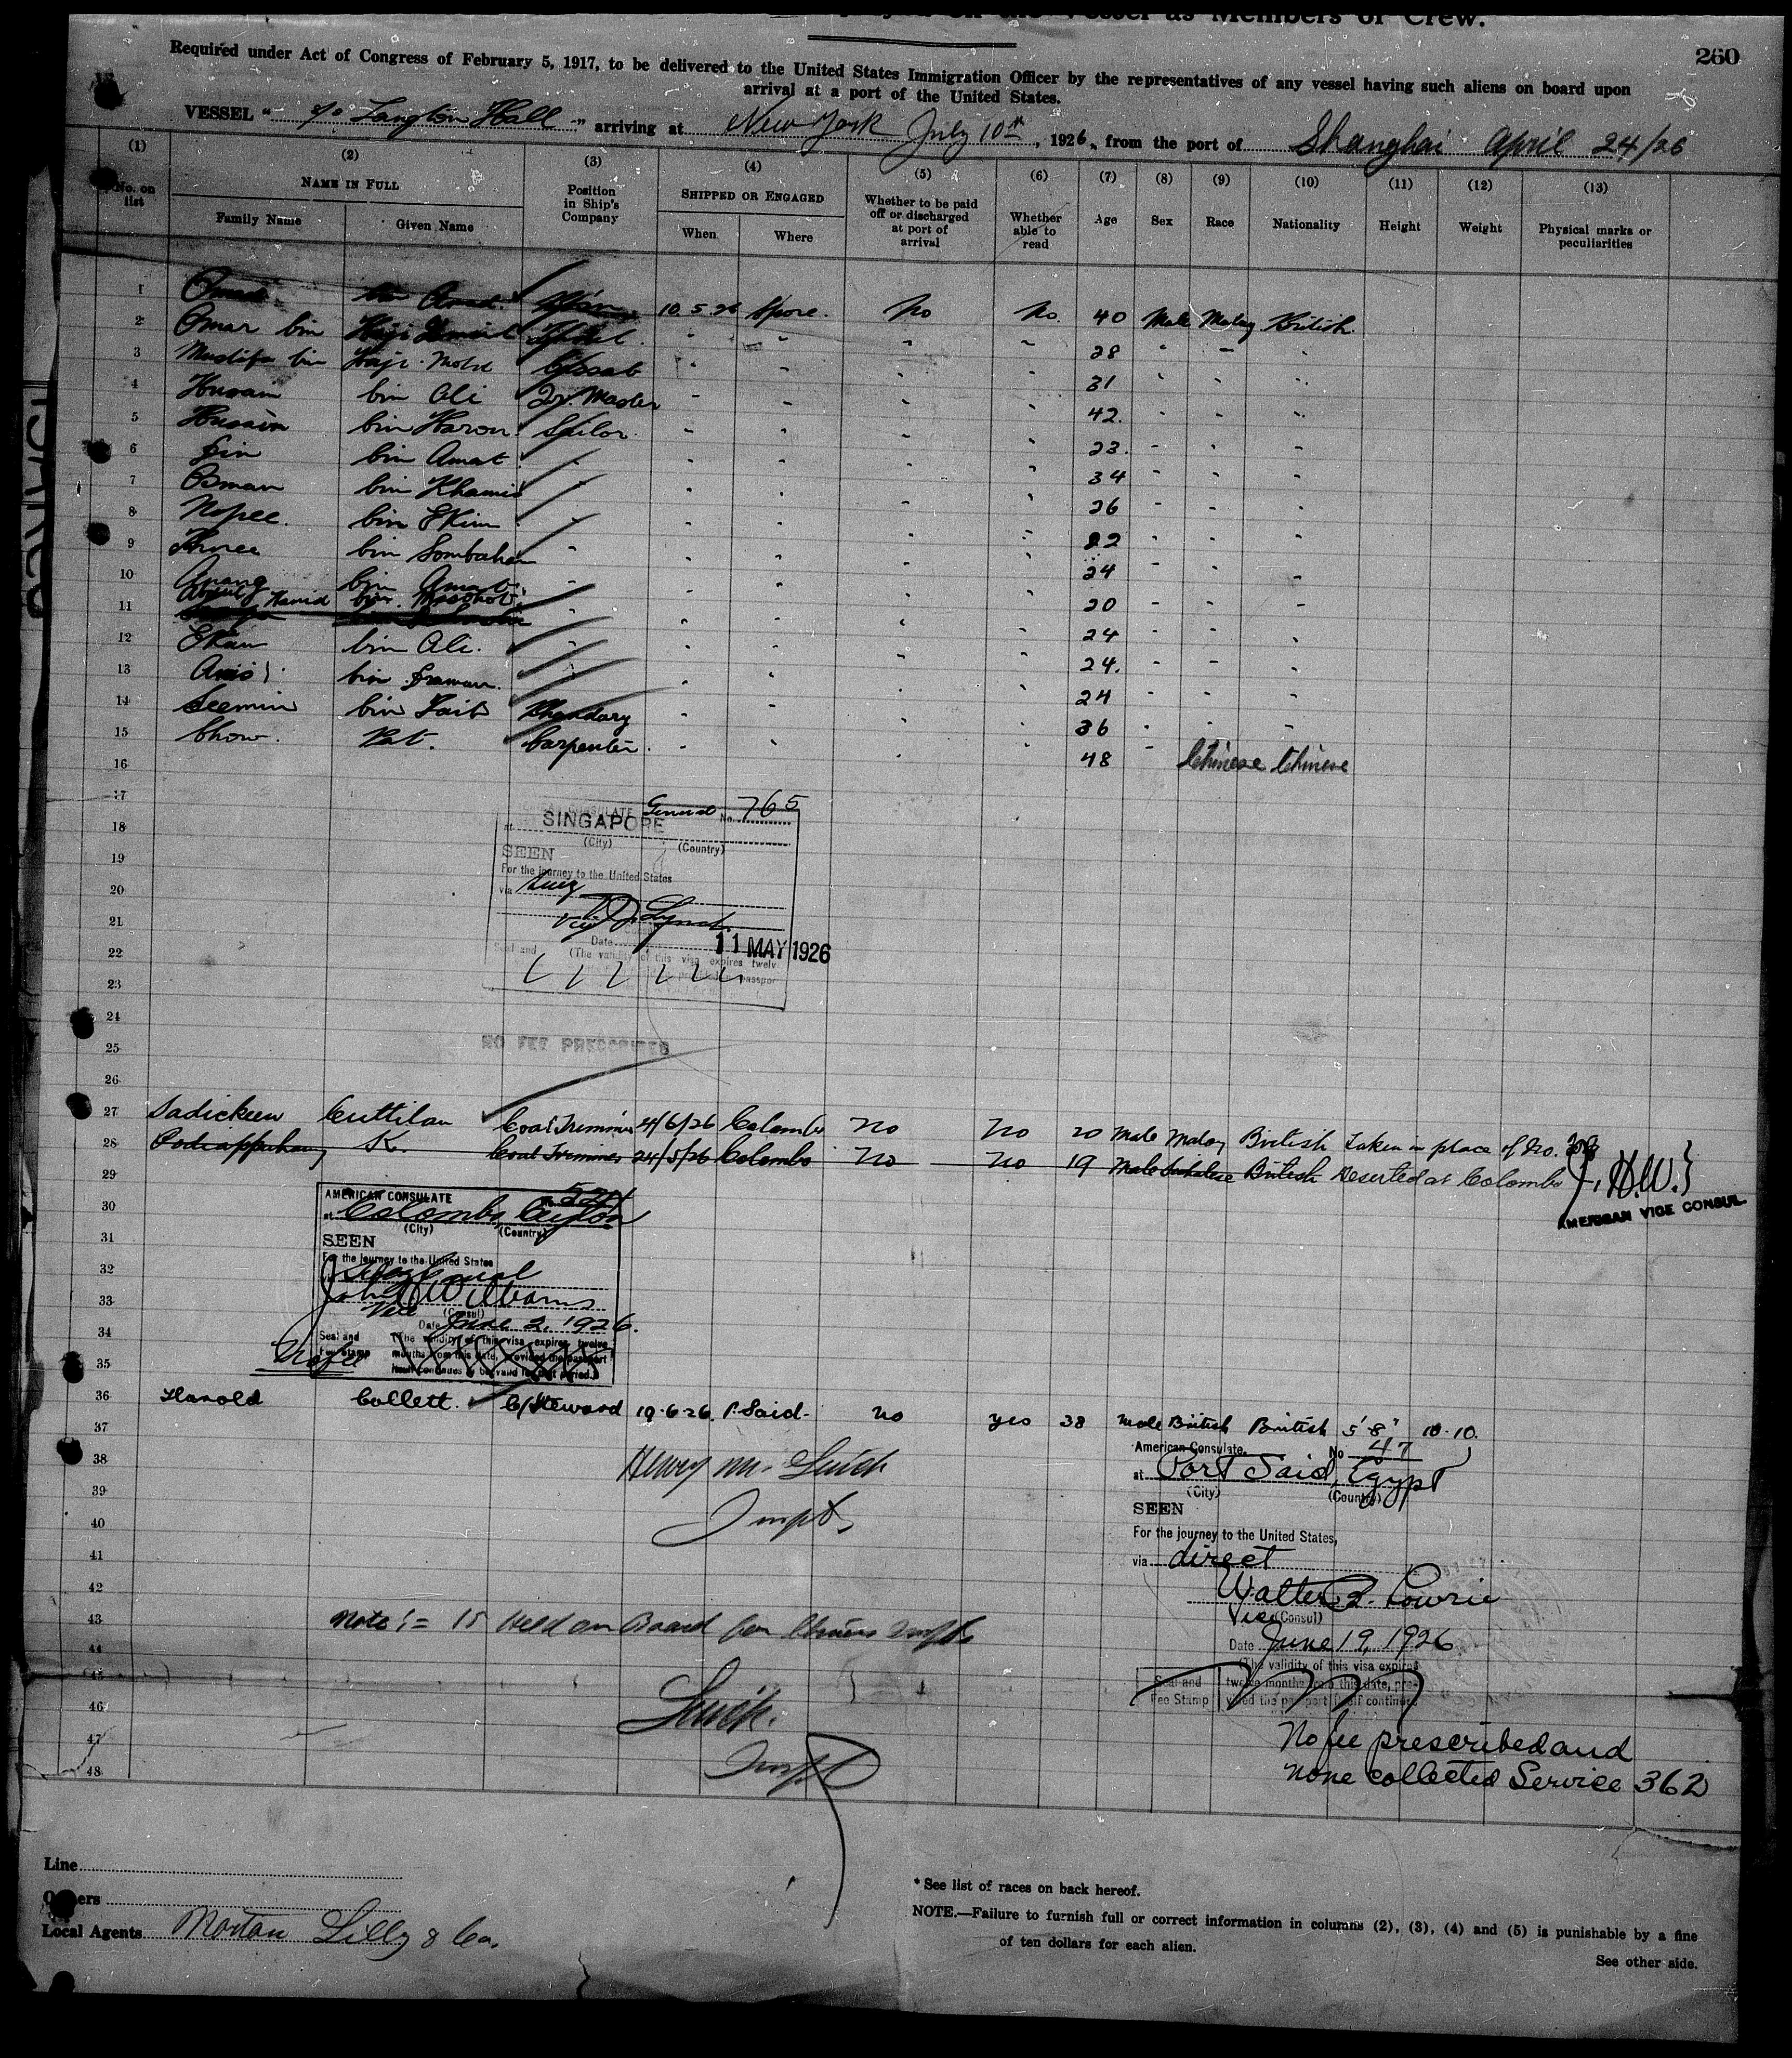 Vessel as Members of Crew.
260
Required under Act of Congress of February 5, 1917, to be delivered to the United States Immigration Officer by the representatives of any vessel having such aliens on board upon
arrival at a port of the United States.
VESSEL " Langton Hall " arriving at New York July 10th, 1926, from the port of Shanghai April 24/26
(1) (2) (3) (4) (5) (6) (7) (8) (9) (10) (11) (12) (13)
No. on list
NAME IN FULL
Family Name Given Name
Position in Ship's Company
SHIPPED OR ENGAGED
When Where
Whether to be paid off or discharged at port of arrival
Whether able to read
Age Sex Race Nationality Height Weight
Physical marks or peculiarities
1 bin 10.5.26 Spore. No No. 40 Male Malay British
2 Omar bin Haji " " " " 28 " " "
3 Mustifa bin Haji Mohd Cassab " " " " 31 " " "
4 Husain bin Ali Qr. Master " " " " 42. " " "
5 Hussin bin Haron Sailor " " " " 23. " " "
6 bin Amat " " " " " 34 " " "
7 Osman bin Khamis " " " " " 26 " " "
8 Nopee. bin Ekim " " " " " 22 " " "
9 bin Sombahan " " " " " 24 " " "
10 Anang bin Amat " " " " " 20 " " "
Abdul Hamid bin
11 " " " " " 24 " " "
12 Ekan bin Ali. " " " " " 24. " " "
13 Anis bin " " " " " 24 " " "
14 Seemin bin Taib Bhandary " " " " 36 " " "
15 Chow. Pat. Carpenter. " " " " 48 " Chinese Chinese
16
17
18
19
20
21
22
23
24
25
26
CONSULATE No. 765
at SINGAPORE
(City) (Country)
SEEN
For the journey to the United States
via Suez
Lynch
Date 11 MAY 1926
Seal and (The validity of this visa expires twelve
passport
NO FEE PRESCRIBED
27 Sadickeen Cuttilan Coal Trimmer 4/6/26 Colombo No No 20 Male Malay British Taken in place of No.
28 Podiappuhamy K. Coal Trimmer 24/5/26 Colombo No No 19 Male Sinhalese British Deserted at Colombo
J.H.W.
AMERICAN VICE CONSUL.
29
30
31
32
33
34
35
AMERICAN CONSULATE
at Colombo, Ceylon
(City) (Country)
SEEN
For the journey to the United States
via Suez Canal
John H Williams
Vice (Consul)
Date June 2, 1926.
Seal and Fee Stamp (The validity of this visa expires twelve
months from this date, provided the passport
itself continues to be valid for that period.)
No fee
36 Harold Collett. C/Steward 19.6.26. P.Said. No yes 38 male British British 5'8" 10.10.
37
38
39
40
41
42
43
44
45
46
47
48
Henry M.
Inspt.
American Consulate. No 47
at Port Said, Egypt
(City) (Country)
SEEN
For the journey to the United States,
via direct
Walter B. Lowrie
Vice (Consul)
Date June 19, 1926
(The validity of this visa expires
Seal and Fee Stamp
twelve months from this date, pro-
vided the passport itself continues
Note:= 15 Held on Board for Chinese Inspt.
Inspt
No fee prescribed and
none collected Service 362
Line
Owners
Local Agents Norton Lilly & Co.
* See list of races on back hereof.
NOTE.—Failure to furnish full or correct information in columns (2), (3), (4) and (5) is punishable by a fine
of ten dollars for each alien.
See other side.